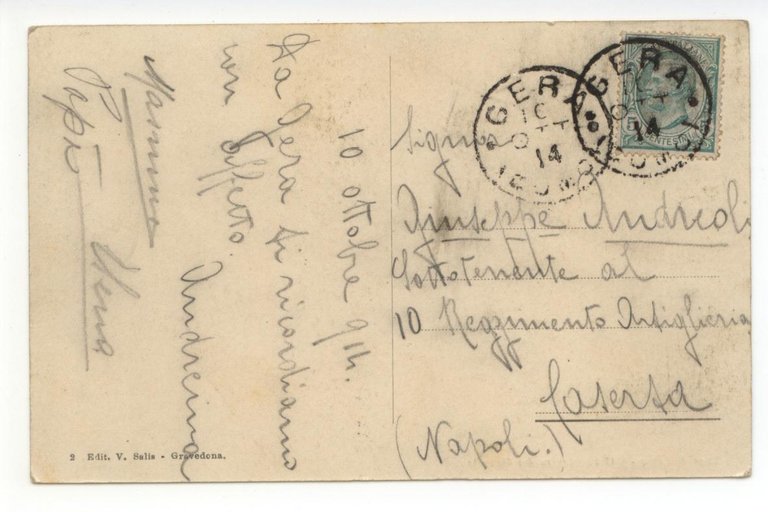 Da Gera ti ricordiamo
con affetto.
Andreina
Mamma
Papà
10 ottobre 914.
GERA
10
OTT
14
(COMO)
GERA
OTT
14
(COMO)
Signor
Giuseppe Andreoli
Sottotenente al
10 Reggimento Artiglieria
Caserta
(Napoli.)
2 Edit. V. Salis - Gravedona.